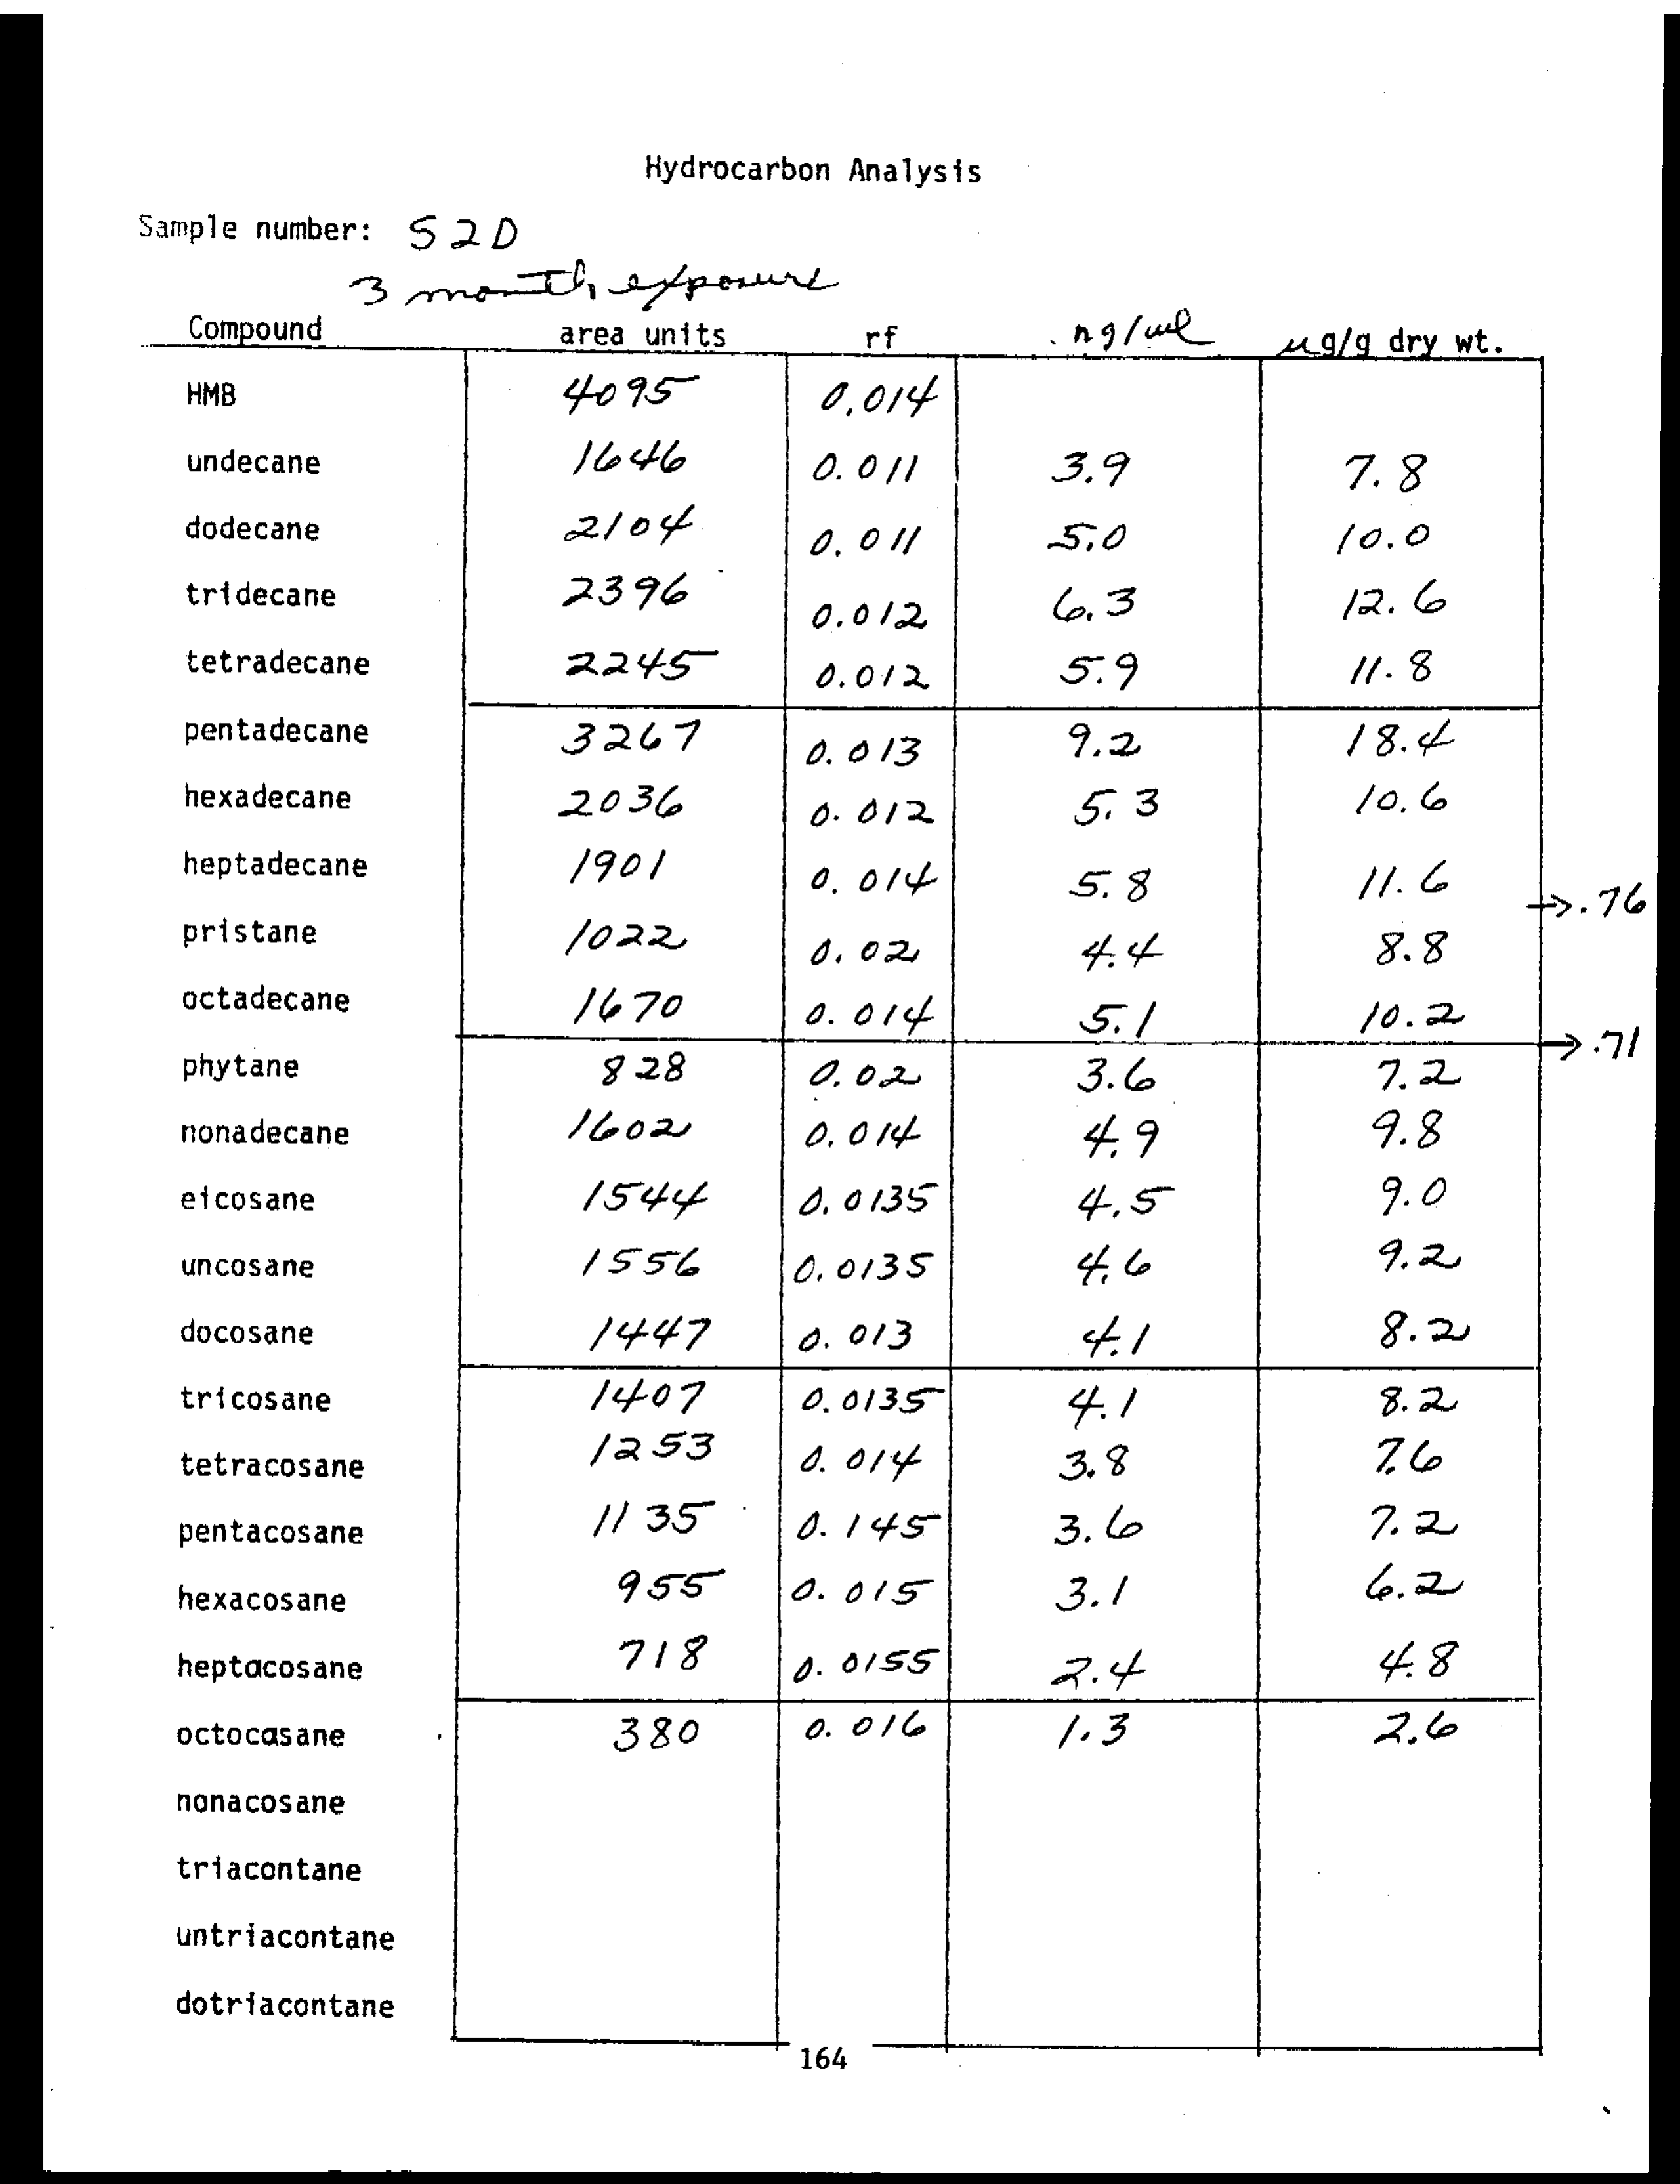 Hydrocarbon Analysis
Sample number: S2D
3 month exposure
Compound area units rf ng/ul ug/g dry wt.
HMB 4095 0.014
undecane 1646 0.011 3.9 7.8
dodecane 2104 0.011 5.0 10.0
tridecane 2396 0.012 6.3 12.6
tetradecane 2245 0.012 5.9 11.8
pentadecane 3267 0.013 9.2 18.4
hexadecane 2036 0.012 5.3 10.6
heptadecane 1901 0.014 5.8 11.6
→.76
pristane 1022 0.02 4.4 8.8
octadecane 1670 0.014 5.1 10.2
→.71
phytane 828 0.02 3.6 7.2
nonadecane 1602 0.014 4.9 9.8
eicosane 1544 0.0135 4.5 9.0
uncosane 1556 0.0135 4.6 9.2
docosane 1447 0.013 4.1 8.2
tricosane 1407 0.0135 4.1 8.2
tetracosane 1253 0.014 3.8 7.6
pentacosane 1135 0.145 3.6 7.2
hexacosane 955 0.015 3.1 6.2
heptacosane 718 0.0155 2.4 4.8
octocasane 380 0.016 1.3 2.6
nonacosane
triacontane
untriacontane
dotriacontane
164